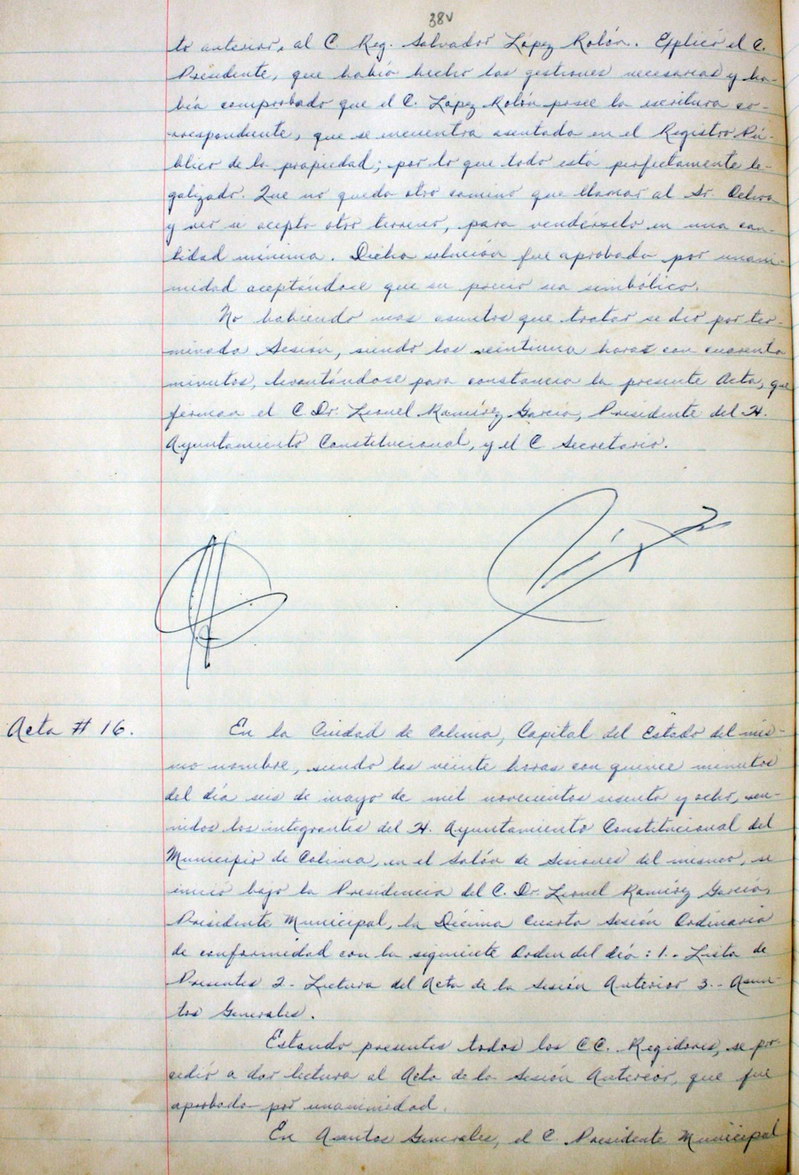 38v
to anterior, al C. Reg. Salvador López Rolón. Explicó el C.
Presidente, que había hecho las gestiones necesarias y ha-
bía comprobado que el C. López Rolón posee la escritura co-
rrespondiente, que se encuentra asentada en el Registro Pú-
blico de la propiedad; por lo que todo está perfectamente le-
galizado. Que no queda otro camino que llamar al Sr. Ochoa
y ver si acepta otro terreno, para vendérselo en una can-
tidad mínima. Dicha solución fue aprobada por unani-
midad aceptándose que su precio sea simbólico.
No habiendo mas asuntos que tratar se dió por ter-
minada Sesión, siendo las veintiuna horas con cuarenta
minutos, levantándose para constancia la presente Acta, que
firman el C. Dr. Leonel Ramírez García, Presidente del H.
Ayuntamiento Constitucional, y el C. Secretario.
Acta # 16.
En la Ciudad de Colima, Capital del Estado del mis-
mo nombre, siendo las veinte horas con quince minutos
del día seis de mayo de mil novecientos sesenta y ocho, reu-
nidos los integrantes del H. Ayuntamiento Constitucional del
Municipio de Colima, en el Salón de Sesiones del mismo, se
inició bajo la Presidencia del C. Dr. Leonel Ramírez García,
Presidente Municipal, la Décima Cuarta Sesión Ordinaria
de conformidad con la siguiente Orden del día: 1.- Lista de
Presentes 2.- Lectura del Acta de la Sesión Anterior 3.- Asun-
tos Generales.
Estando presentes todos los CC. Regidores, se pro-
cedió a dar lectura al Acta de la Sesión Anterior, que fue
aprobada por unanimidad.
En Asuntos Generales, el C. Presidente Municipal